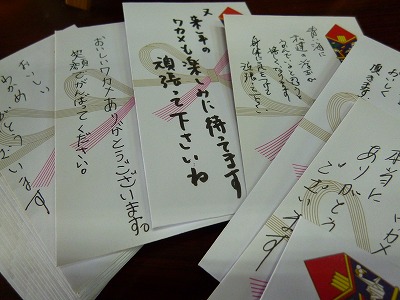 おいしい
わかめ
がとうございます
おいしいワカメありがとうございます。
がんばってください。
又来年の
ワカメも楽しみに待ってます
頑張って下さいね
青い海に
身体に気をつけて
頑張って下さい
おいしく
頂きます
わかめ
本当に
ありがとう
ございます